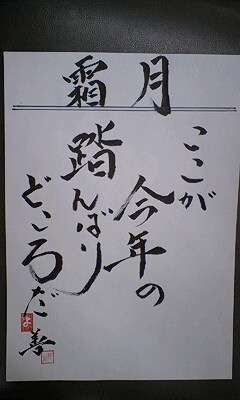 霜月
ここが
今年の
踏んばり
どころだ
善
よ